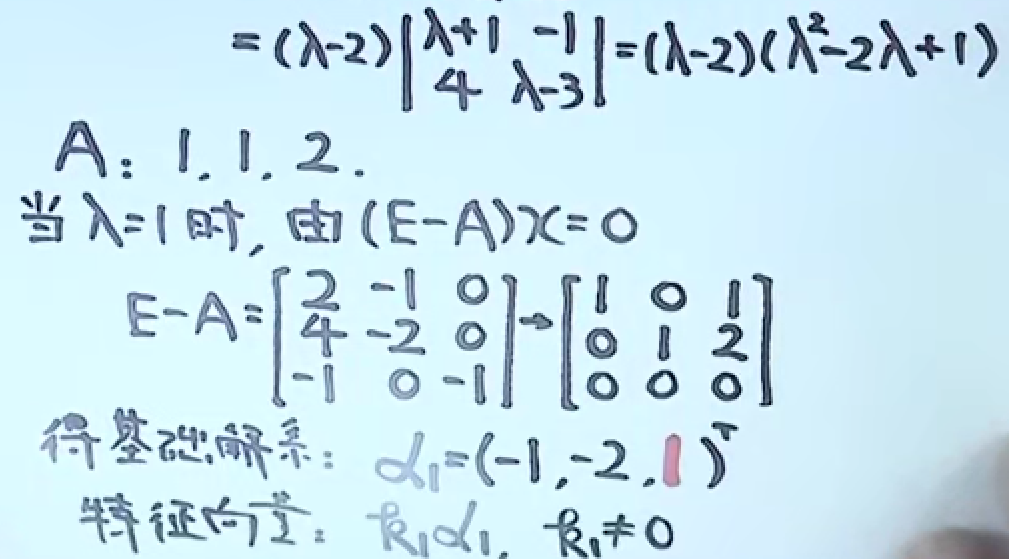 =(λ-2)|λ+1 -1; 4 λ-3|=(λ-2)(λ²-2λ+1)
A: 1, 1, 2.
当λ=1时, 由(E-A)x=0
E-A=[2 -1 0; 4 -2 0; -1 0 -1]→[1 0 1; 0 1 2; 0 0 0]
得基础解系: α₁=(-1,-2,1)ᵀ
特征向量: k₁α₁, k₁≠0